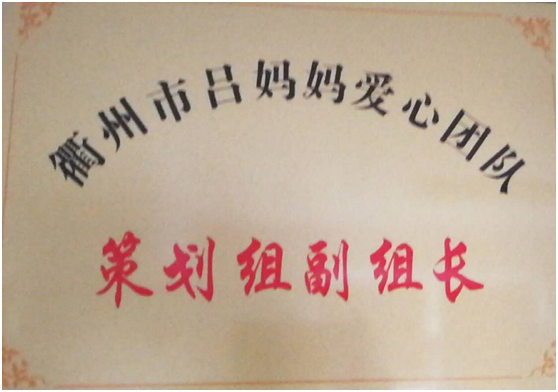 衢州市吕妈妈爱心团队
策划组副组长